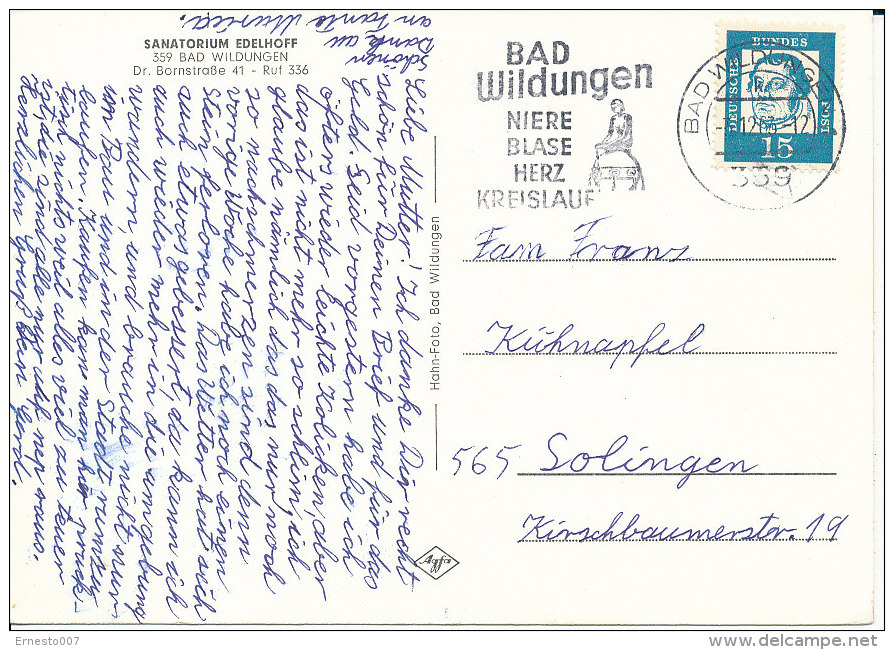 SANATORIUM EDELHOFF
359 BAD WILDUNGEN
Dr. Bornstraße 41 - Ruf 336
Liebe Mutter! Ich danke Dir recht
schön für Deinen Brief und für das
Geld. Seid vorgestern habe ich
öfters wieder leichte Koliken, aber
das ist nicht mehr so schlim, ich
glaube nämlich das das nur noch
so nachschmerzen sind denn
vorige Woche hab ich noch einen
Stein verloren. Das Wetter hat sich
auch etwas gebessert, da kann ich
auch wieder mehr in die umgebung
wandern, und brauche nicht nur
im Bau und in der Stadt rumzu
laufen. Kaufen kan man hir prack-
tisch nichts weil alles viel zu teuer
ist, die sind alle nur auf nep raus.
Herzlichen Gruß Dein Gerd.
Schönen
Dank an
an Tante Maria.
Hahn-Foto, Bad Wildungen
Agfa
BAD
Wildungen
NIERE
BLASE
HERZ
KREISLAUF
BAD WILDUNGEN
359
DEUTSCHE
BUNDES
POST
15
Fam Franz
Kühnapfel
565 Solingen
Kirschbaumerstr. 19
Ernesto007
delcampe.net